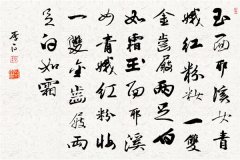 玉面耶溪女青
娥紅粉妝一雙
金齒屐兩足白
如霜玉面耶溪
女青娥紅粉妝
一雙金齒屐兩
足白如霜